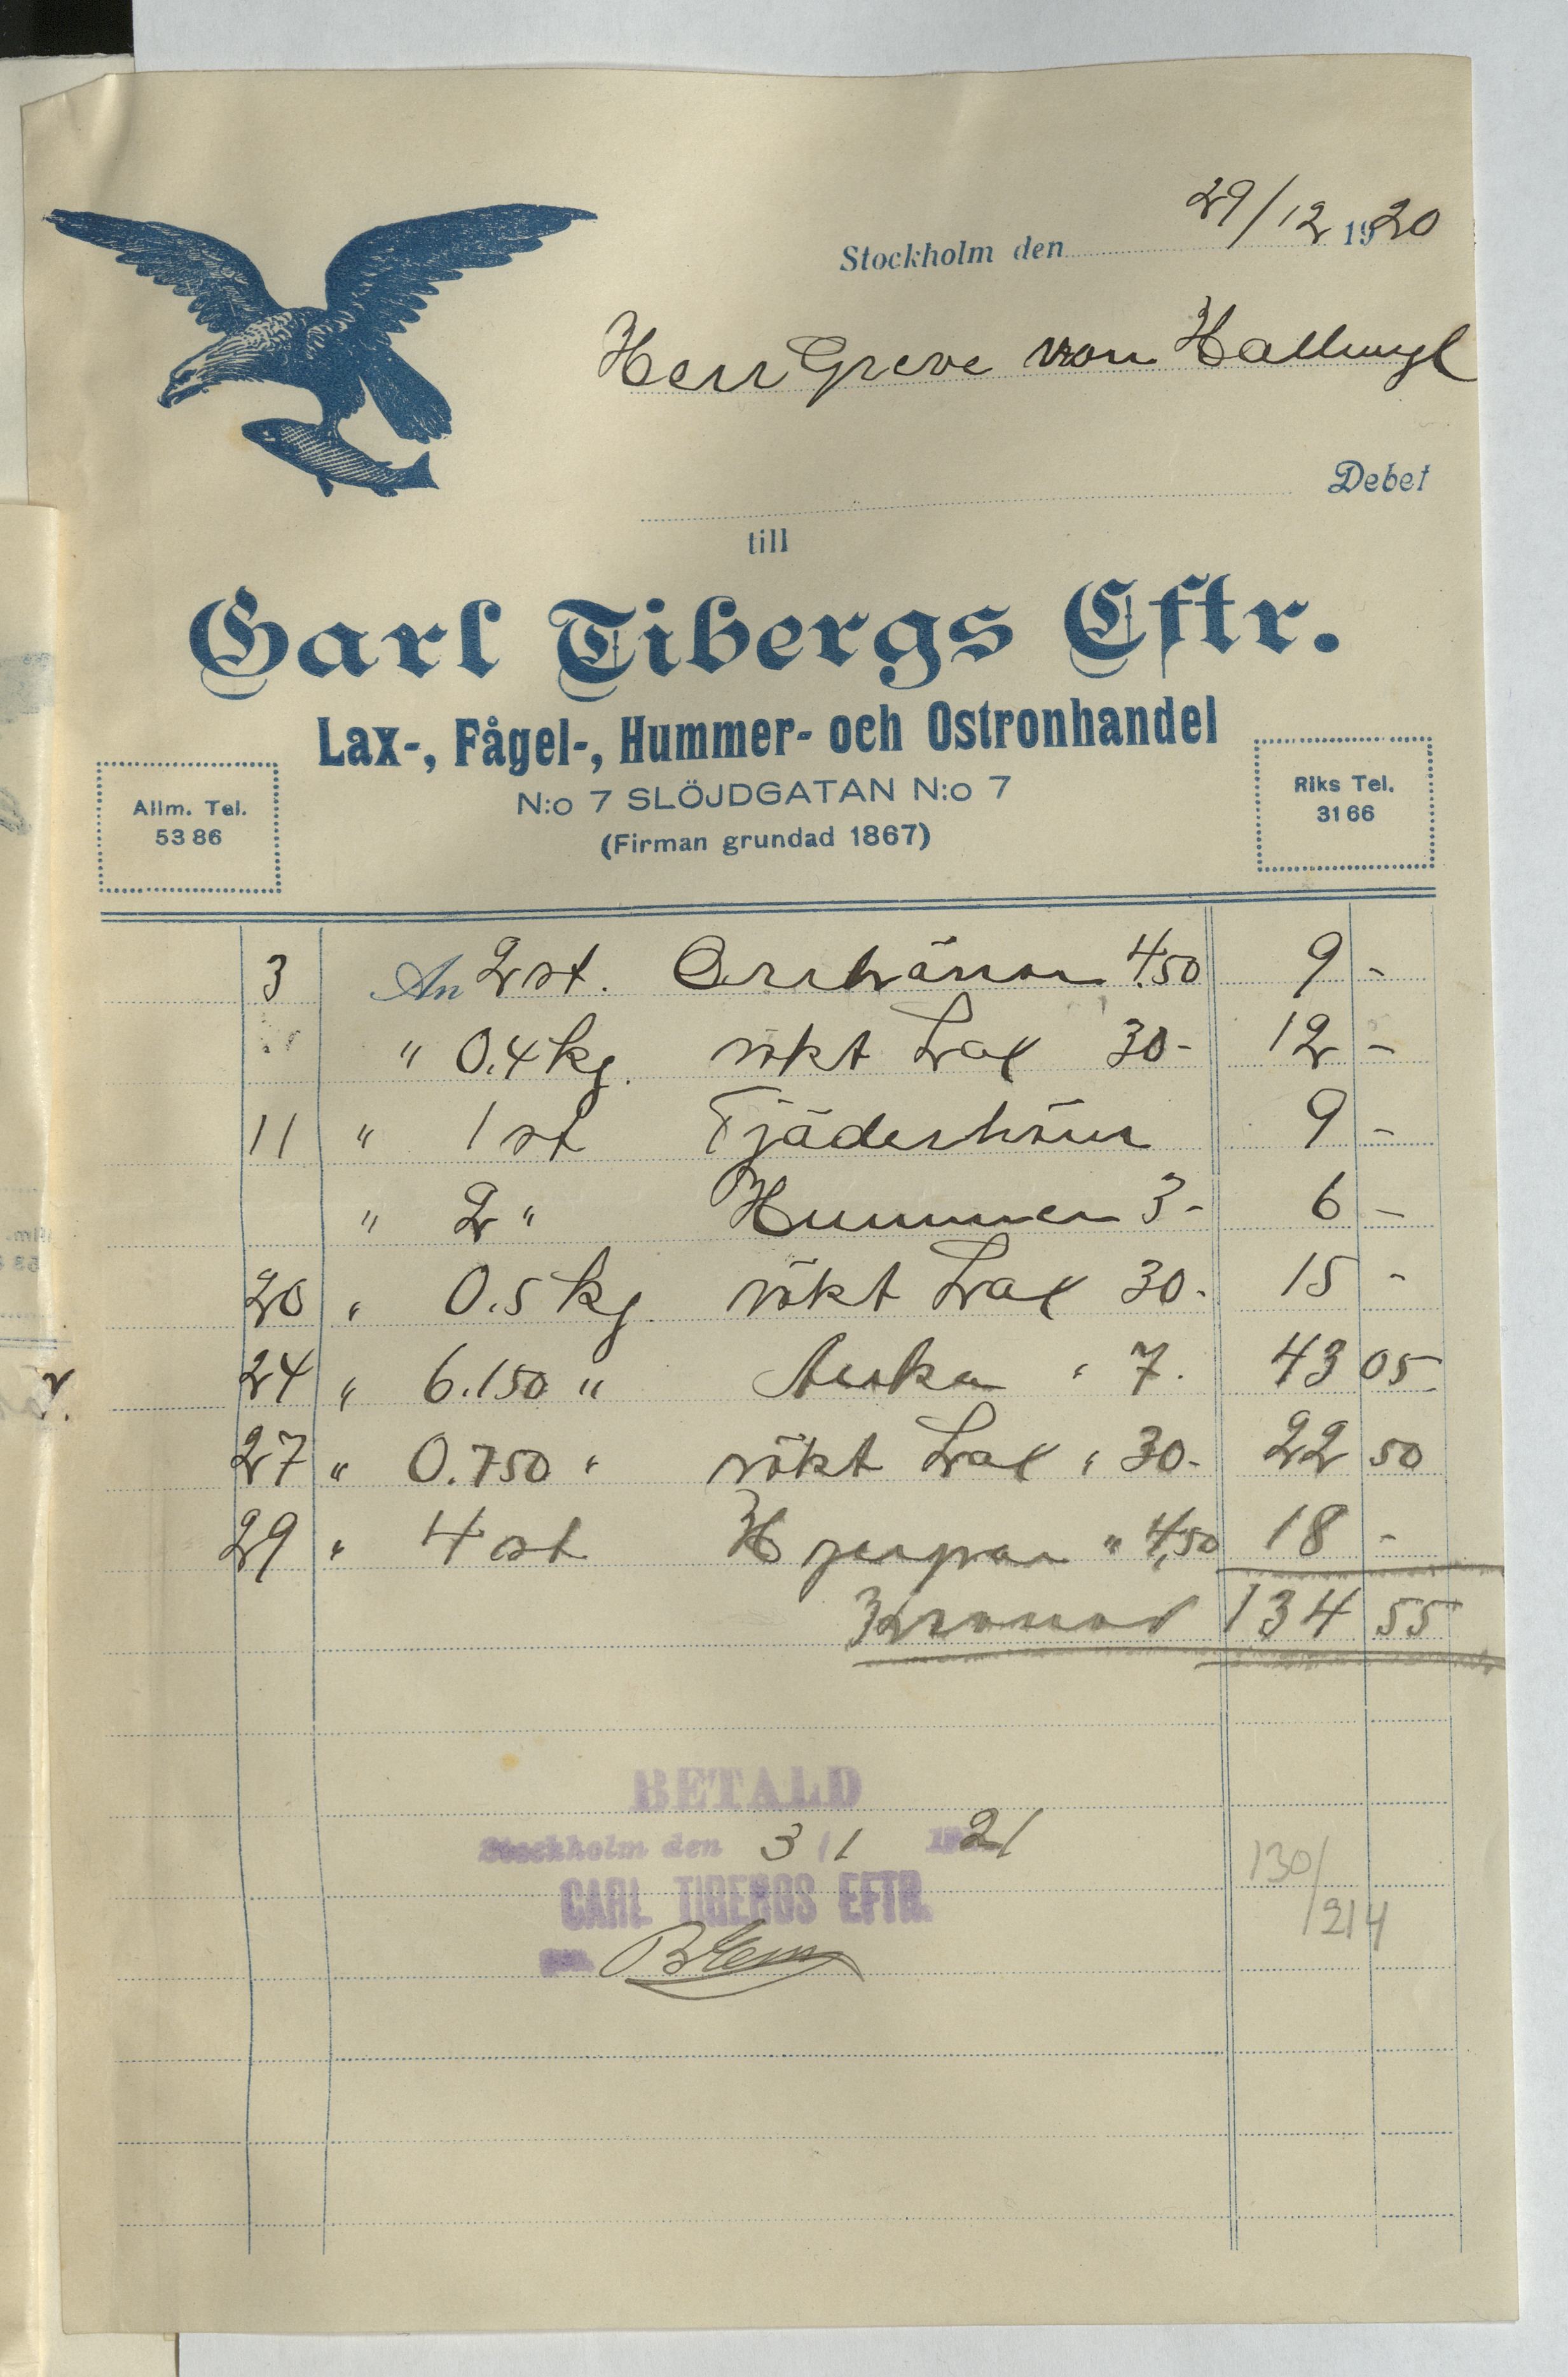 Stockholm den 29/12 1920
Herr Greve von Hallwyl
Debet
till
Carl Tibergs Eftr.
Lax-, Fågel-, Hummer- och Ostronhandel
N:o 7 SLÖJDGATAN N:o 7
(Firman grundad 1867)
Allm. Tel.
53 86
Riks Tel.
31 66
3 An 2 st. Orrhönor 4.50 9 -
" 0.4 kg. rökt Lax 30- 12 -
11 " 1 st Tjäderhöna 9 -
" 2 " Hummer 3- 6 -
20 " 0.5 kg. rökt Lax 30- 15 -
24 " 6.150 " " 7. 43 05
27 " 0.750 " rökt Lax " 30- 22 50
29 " 4 st Hjerpar " 4,50 18 -
Kronor 134 55
BETALD
Stockholm den 3/1 1921
CARL TIBERGS EFTR.
130/214